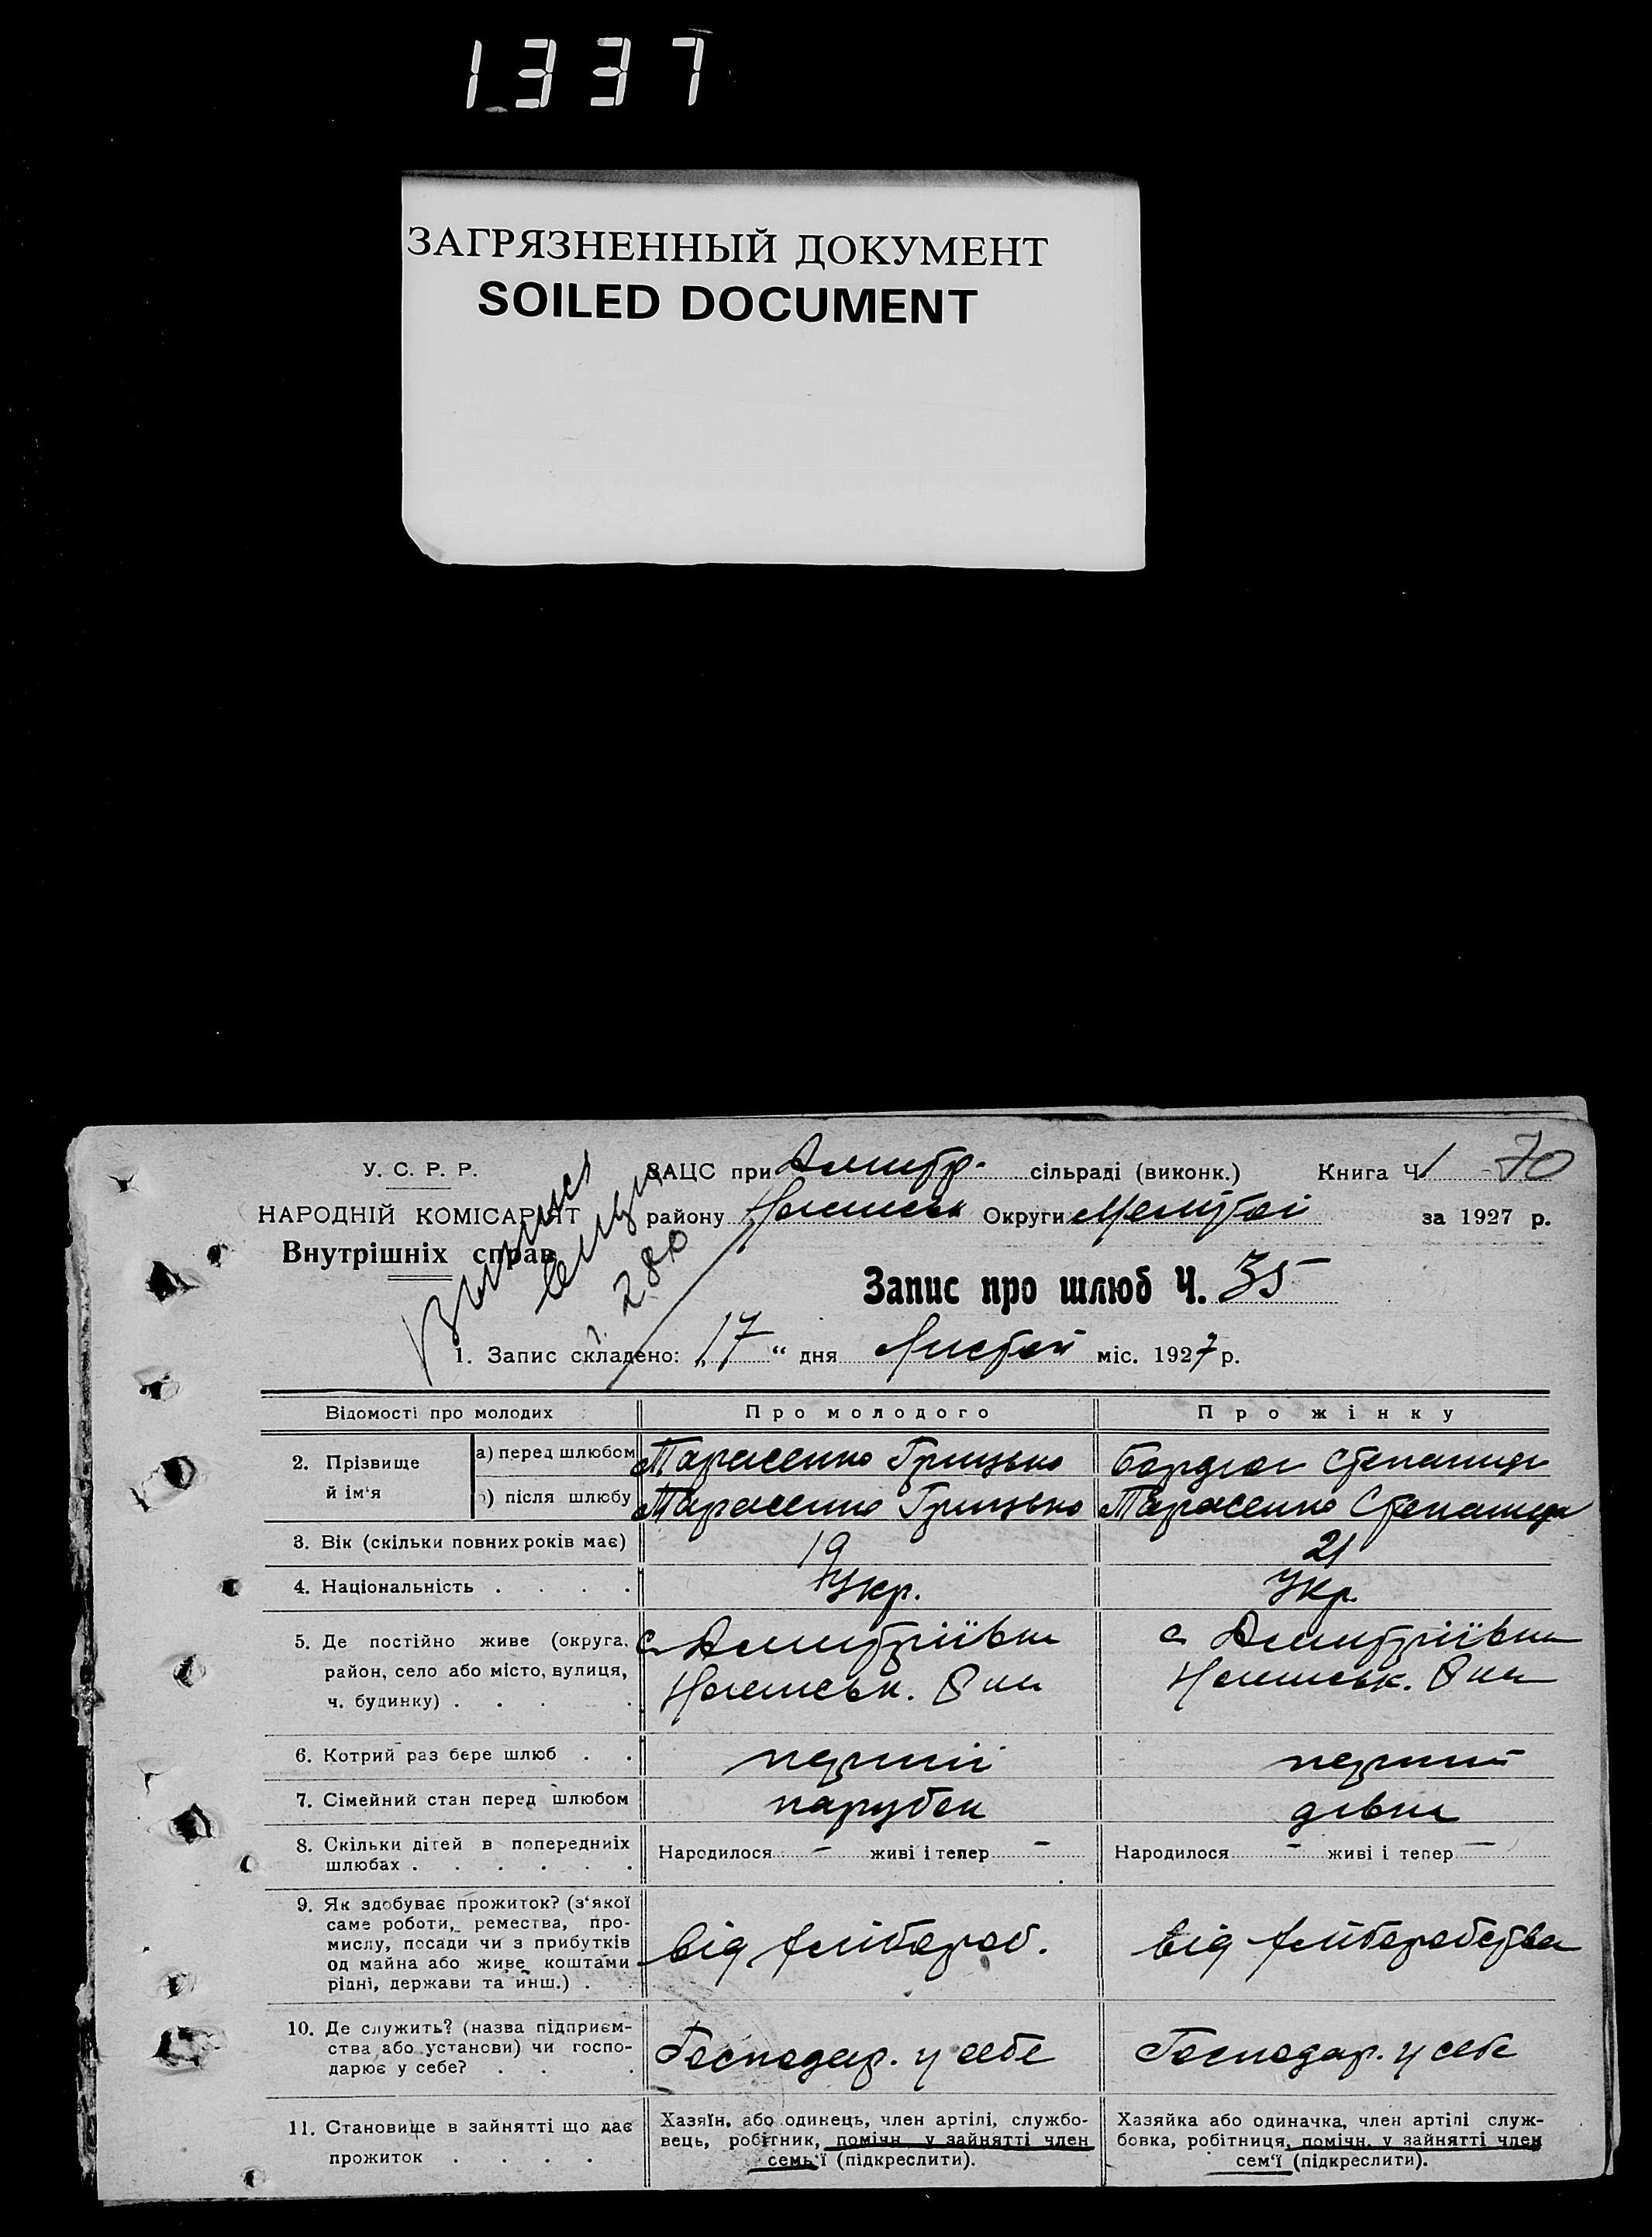 1337
ЗАГРЯЗНЕННЫЙ ДОКУМЕНТ
SOILED DOCUMENT
У. С. Р. Р.
НАРОДНІЙ КОМІСАРІЯТ
Внутрішніх справ
280
ЗАЦС при Дмитр. сільраді (виконк.) Книга Ч 1 70
району Округи Меліт за 1927 р.
Запис про шлюб Ч. 35
1. Запис складено: „17“ дня Листоп міс. 1927 р.
Відомості про молодих Про молодого Про жінку
2. Прізвище й ім'я
а) перед шлюбом Тарасенко Грицько Степанида
б) після шлюбу Тарасенко Грицько Тарасенко Степанида
3. Вік (скільки повних років має) 19 21
4. Національність . . . . Укр. Укр.
5. Де постійно живе (округа, с Дмитріівка с Дмитріівка
район, село або місто, вулиця,
ч. будинку) . . . .
6. Котрий раз бере шлюб . . перший перший
7. Сімейний стан перед шлюбом парубок дівка
8. Скільки дітей в попередниіх
шлюбах . . . . . . Народилося - живі і тепер - Народилося - живі і тепер -
9. Як здобуває прожиток? (з'якої
саме роботи, ремества, про-
мислу, посади чи з прибутків
од майна або живе коштами
рідні, держави та инш.) . . від хлібороб. від хліборобства
10. Де служить? (назва підприєм-
ства або установи) чи госпо-
дарює у себе? . . . Господар. у себе Господар. у себе
11. Становище в зайнятті що дає
прожиток . . . .
Хазяїн, або одинець, член артілі, службо-
вець, робітник, помічн. у зайнятті член
семь'ї (підкреслити).
Хазяйка або одиначка, член артілі служ-
бовка, робітниця, помічн. у зайнятті член
сем'ї (підкреслити).